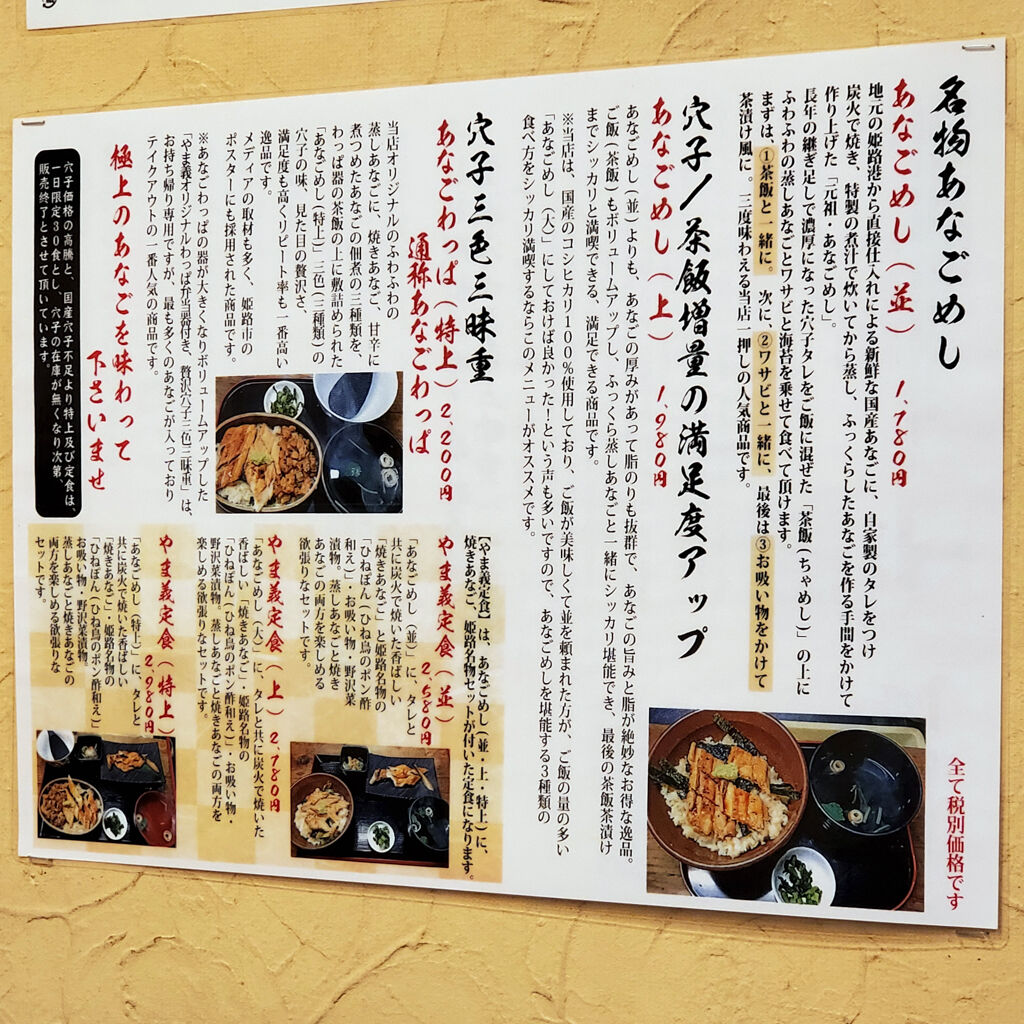 名物あなごめし
あなごめし（並） 1,780円
地元の姫路港から直接仕入れによる新鮮な国産あなごに、自家製のタレをつけ
炭火で焼き、特製の煮汁で炊いてから蒸し、ふっくらしたあなごを作る手間をかけて
作り上げた「元祖・あなごめし」。
長年の継ぎ足しで濃厚になった穴子タレをご飯に混ぜた「茶飯（ちゃめし）」の上に
ふわふわの蒸しあなごとワサビと海苔を乗せて食べて頂けます。
まずは、①茶飯と一緒に。 次に、②ワサビと一緒に、最後は③お吸い物をかけて
茶漬け風に。三度味わえる当店一押しの人気商品です。
全て税別価格です
穴子/茶飯増量の満足度アップ
あなごめし（上） 1,980円
あなごめし（並）よりも、あなごの厚みがあって脂のりも抜群で、あなごの旨みと脂が絶妙なお得な逸品。
ご飯（茶飯）もボリュームアップし、ふっくら蒸しあなごと一緒にシッカリ堪能でき、最後の茶飯茶漬け
までシッカリと満喫できる、満足できる商品です。
※当店は、国産のコシヒカリ100%使用しており、ご飯が美味しくて並を頼まれた方が、ご飯の量の多い
「あなごめし（大）」にしておけば良かった！という声も多いですので、あなごめしを堪能する3種類の
食べ方をシッカリ満喫するならこのメニューがオススメです。
穴子三色三昧重
あなごわっぱ（特上） 2,200円
通称あなごわっぱ
当店オリジナルのふわふわの
蒸しあなごに、焼きあなご、甘辛に
煮つめたあなごの佃煮の三種類を、
わっぱ器の茶飯の上に敷詰められた
「あなごめし（特上）」三色（三種類）の
穴子の味、見た目の贅沢さ、
満足度も高くリピート率も一番高い
逸品です。
メディアの取材も多く、姫路市の
ポスターにも採用された商品です。
※あなごわっぱの器が大きくなりボリュームアップした
「やま義オリジナルわっぱ弁当器付き、贅沢穴子三色三昧重」は、
お持ち帰り専用ですが、最も多くのあなごが入っており
テイクアウトの一番人気の商品です。
極上のあなごを味わって
下さいませ
穴子価格の高騰と、国産穴子不足より特上及び定食は、
一日限定30食とし、穴子の在庫が無くなり次第、
販売終了とさせて頂いています。
【やま義定食】は、あなごめし（並・上・特上）に、
焼きあなご、姫路名物セットが付いた定食になります。
やま義定食（並） 2,580円
「あなごめし（並）」に、タレと
共に炭火で焼いた香ばしい
「焼きあなご」と姫路名物の
「ひねぽん（ひね鳥のポン酢
和え）」・お吸い物・野沢菜
漬物。蒸しあなごと焼き
あなごの両方を楽しめる
欲張りなセットです。
やま義定食（上） 2,780円
「あなごめし（大）」に、タレと共に炭火で焼いた
香ばしい「焼きあなご」・姫路名物の
「ひねぽん（ひね鳥のポン酢和え）」・お吸い物・
野沢菜漬物。蒸しあなごと焼きあなごの両方を
楽しめる欲張りなセットです。
やま義定食（特上） 2,980円
「あなごめし（特上）」に、タレと
共に炭火で焼いた香ばしい
「焼きあなご」・姫路名物の
「ひねぽん（ひね鳥のポン酢和え）」
お吸い物・野沢菜漬物。
蒸しあなごと焼きあなごの
両方を楽しめる欲張りな
セットです。